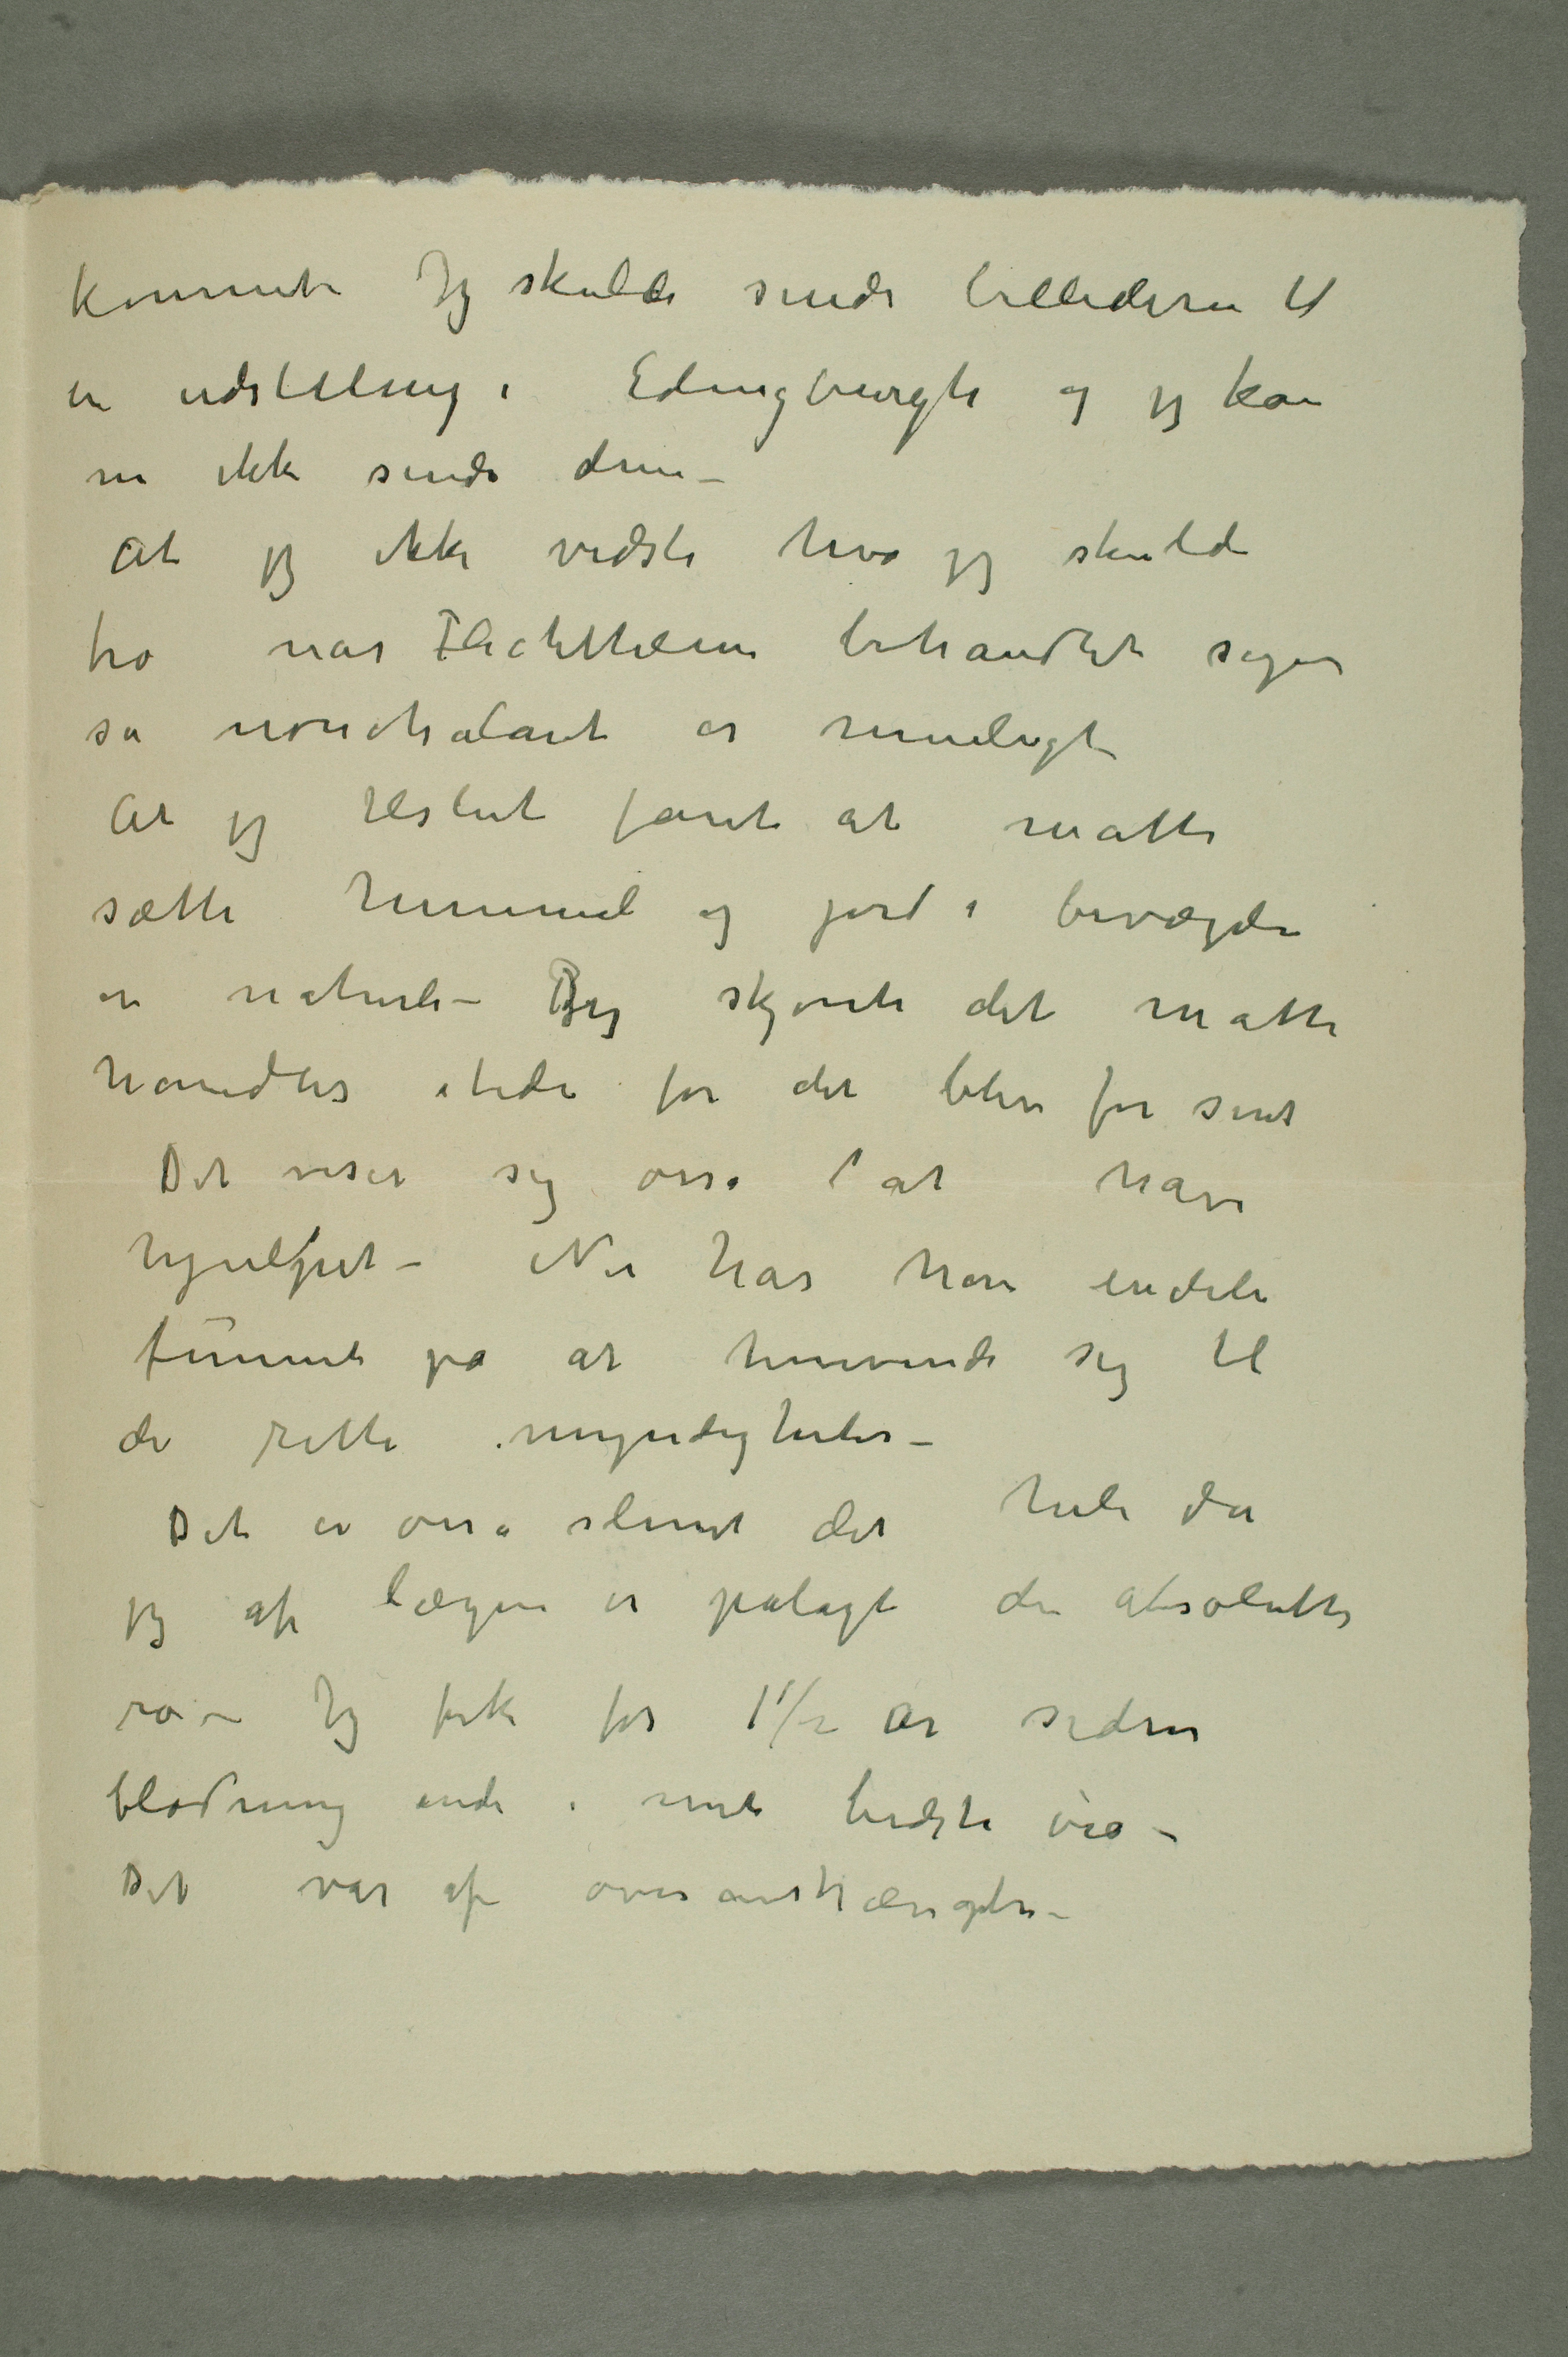 kommet. Jeg skulde sende billederne til
en udstilling i Edingburgh og jeg kan
nu ikke sende dem –
At jeg ikke vidste hva jeg skulde
tro når Flechtheim behandlet sagen
så nonchalant er rimeligt
At jeg tilslut fant at måtte
sætte himmel og jord i bevægelse
er naturli – Jeg skjønte det måtte
handles itide før det blev for sent
Det viser sig osså at have
hjulpet – Nu har han endeli
funnet på at henvende sig til
de rette myndigheter –
Det er osså slemt det hele da
jeg af lægen er pålagt den absolutte
ro – Jeg fik for 1 1/2 år siden
blødning inde i mit bedste øie –
Det var af overanstrængelse –